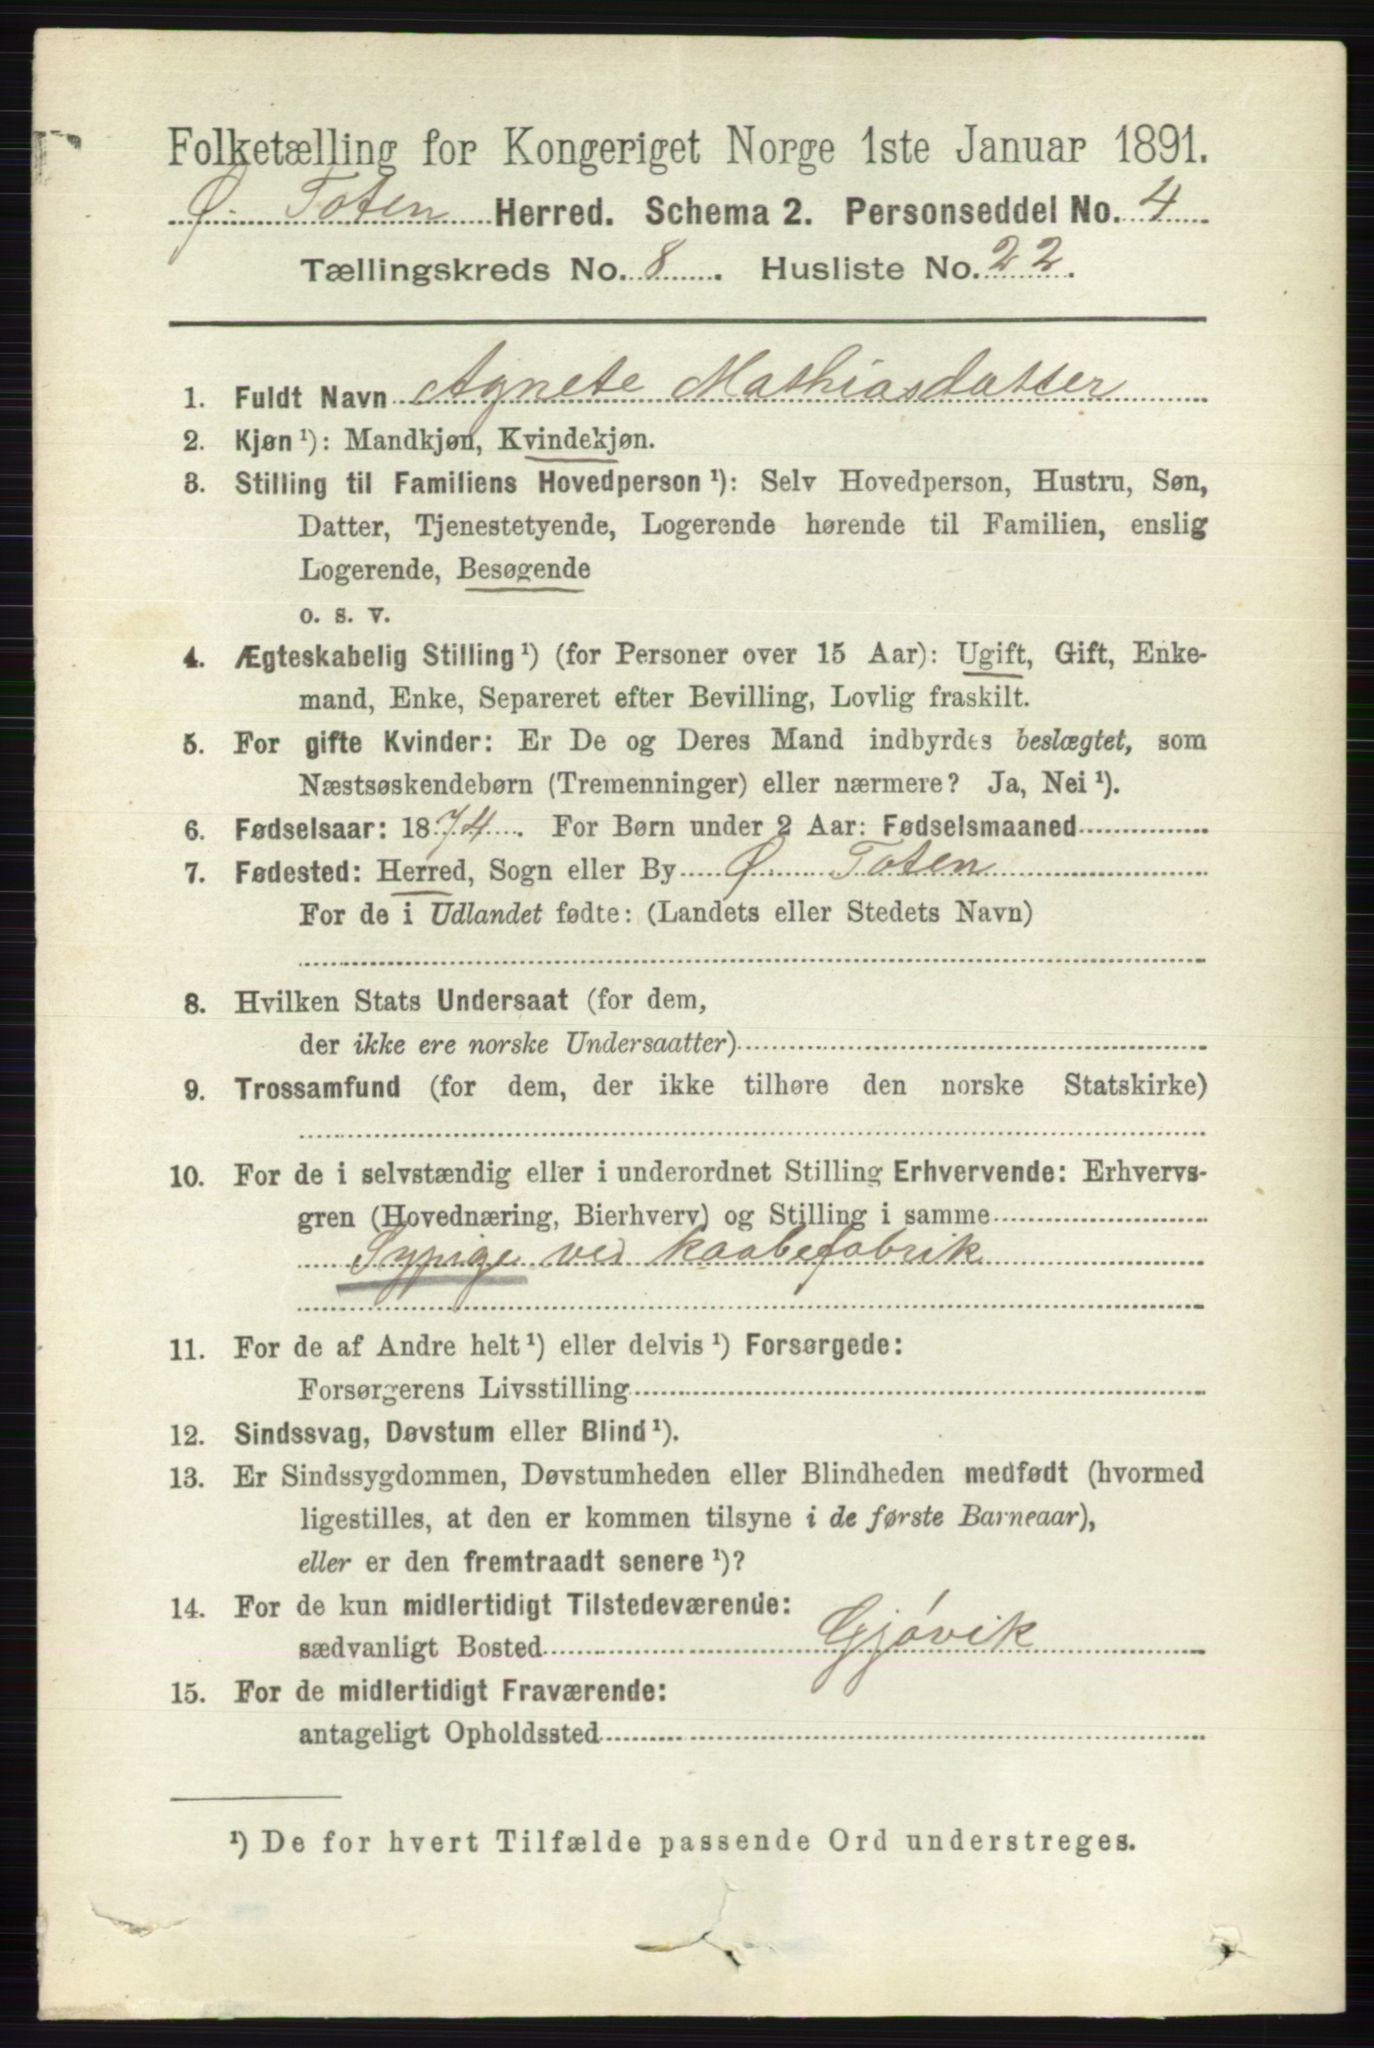 Folketælling for Kongeriget Norge 1ste Januar 1891.
Ø. Toten Herred. Schema 2. Personseddel No. 4
Tællingskreds No. 8. Husliste No. 22.
1. Fuldt Navn Agnete Mathiasdatter
2. Kjøn ¹): Mandkjøn, Kvindekjøn.
3. Stilling til Familiens Hovedperson ¹): Selv Hovedperson, Hustru, Søn,
Datter, Tjenestetyende, Logerende hørende til Familien, enslig
Logerende, Besøgende
o. s. v.
4. Ægteskabelig Stilling ¹) (for Personer over 15 Aar): Ugift, Gift, Enke-
mand, Enke, Separeret efter Bevilling, Lovlig fraskilt.
5. For gifte Kvinder: Er De og Deres Mand indbyrdes beslægtet, som
Næstsøskendebørn (Tremenninger) eller nærmere? Ja, Nei ¹).
6. Fødselsaar: 1874. For Børn under 2 Aar: Fødselsmaaned
7. Fødested: Herred, Sogn eller By Ø. Toten
For de i Udlandet fødte: (Landets eller Stedets Navn)
8. Hvilken Stats Undersaat (for dem,
der ikke ere norske Undersaatter)
9. Trossamfund (for dem, der ikke tilhøre den norske Statskirke)
10. For de i selvstændig eller i underordnet Stilling Erhvervende: Erhvervs-
gren (Hovednæring, Bierhverv) og Stilling i samme
Sypige ved kaabefabrik
11. For de af Andre helt ¹) eller delvis ¹) Forsørgede:
Forsørgerens Livsstilling
12. Sindssvag, Døvstum eller Blind ¹).
13. Er Sindssygdommen, Døvstumheden eller Blindheden medfødt (hvormed
ligestilles, at den er kommen tilsyne i de første Barneaar),
eller er den fremtraadt senere ¹)?
14. For de kun midlertidigt Tilstedeværende:
sædvanligt Bosted Gjøvik
15. For de midlertidigt Fraværende:
antageligt Opholdssted
¹) De for hvert Tilfælde passende Ord understreges.